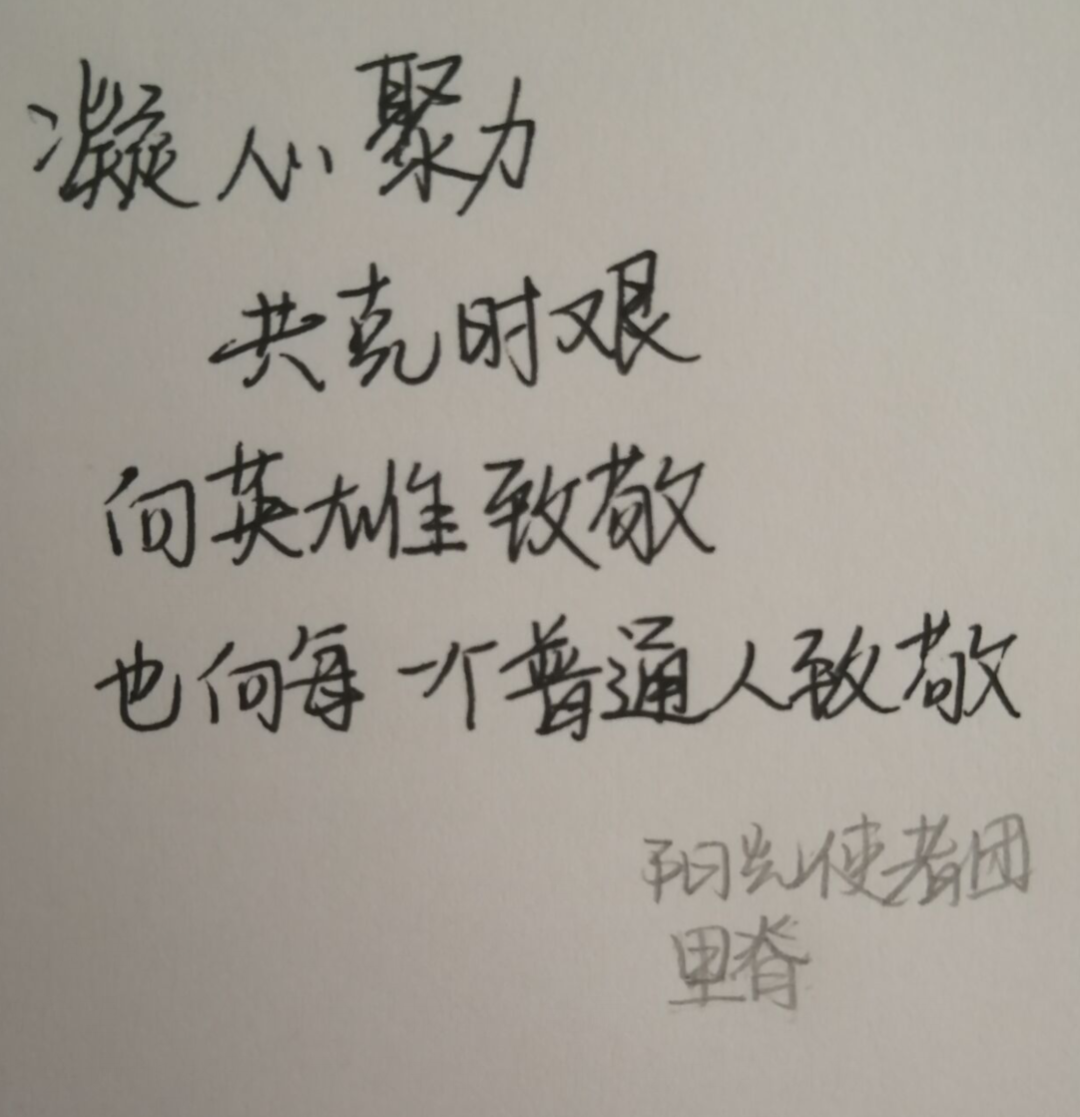 凝心聚力
共克时艰
向英雄致敬
也向每一个普通人致敬
阳光使者团
里脊